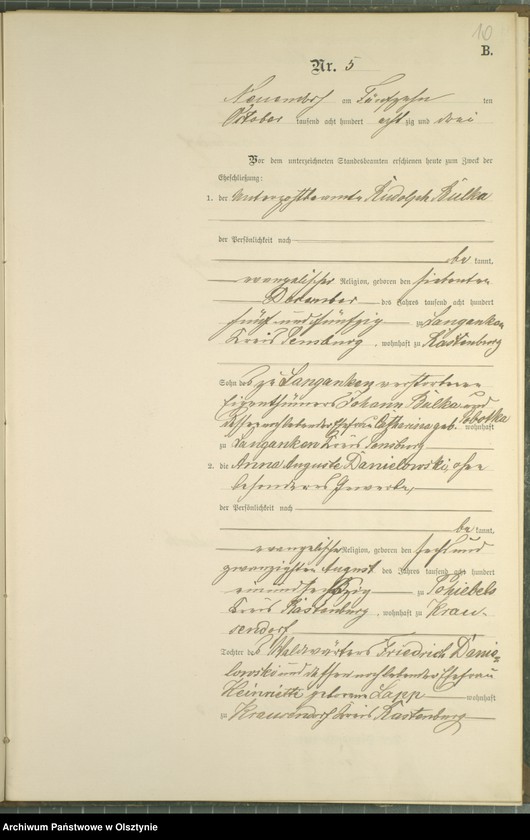 10
B.
Nr. 5
am Fünfzehn ten
Oktober tausend acht hundert acht zig und drei
Vor dem unterzeichneten Standesbeamten erschienen heute zum Zweck der
Eheschließung:
1. der Unterpostbeamte Rudolph Bulka
der Persönlichkeit nach
be kannt,
evangelischer Religion, geboren den siebenten
Dezember des Jahres tausend acht hundert
fünf und fünfzig zu Langanken
Kreis Sensburg, wohnhaft zu Rastenburg
Sohn des zu Langanken verstorbenen
Eigenthümers Johann Bulka und
dessen nachlebender Ehefrau geb. Sobottka wohnhaft
zu Langanken Kreis Sensburg
2. die Anna Auguste Danielowski, ohne
besonderes Gewerbe,
der Persönlichkeit nach
be kannt,
evangelischer Religion, geboren den sechs und
zwanzigsten August des Jahres tausend acht hundert
ein und sechszig zu
Kreis Rastenburg, wohnhaft zu Krau-
sendorf
Tochter des Waldwärters Friedrich Danie-
lowski und dessen nachlebender Ehefrau
Heinriette geborene Lapp wohnhaft
zu Krausendorf Kreis Rastenburg
Archiwum Państwowe w Olsztynie